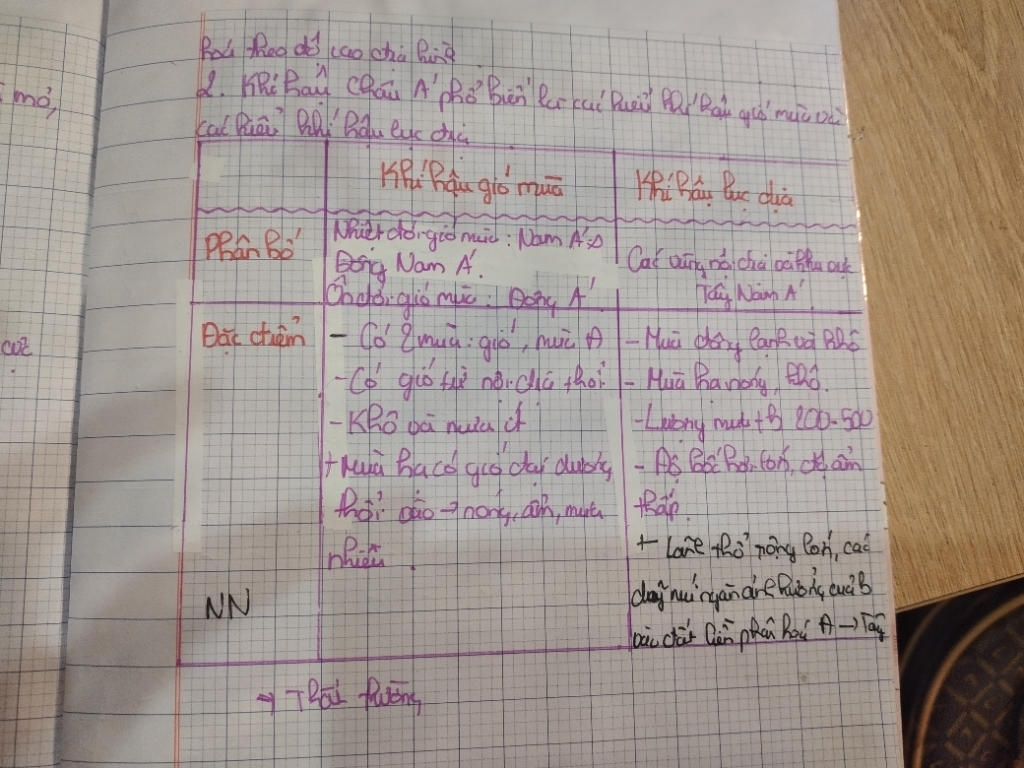 mỏ,
hoá theo độ cao địa hình
2. Khí hậu Châu Á phổ biến là các kiểu khí hậu gió mùa và
các kiểu khí hậu lục địa
Khí hậu gió mùa
Khí hậu lục địa
Phân bố
Nhiệt đới gió mùa: Nam Á
Đông Nam Á.
Ôn đới gió mùa: Đông Á
Các vùng nội địa và khu vực
Tây Nam Á
Đặc điểm
- Có 2 mùa: gió, mùa
- Có gió từ nội địa thổi
- Khô và mưa ít
+ Mùa hạ có gió đại dương
thổi vào → nóng, ẩm, mưa
nhiều.
- Mùa đông lạnh và khô
- Mùa hạ nóng, khô.
- Lượng mưa tb 200-500
- Độ bốc hơi lớn, độ ẩm
thấp.
+ Lãnh thổ rộng lớn, các
dãy núi ngăn ảnh hưởng của B
vào đất liền phân hoá → Tây
NN
→ Thất thường